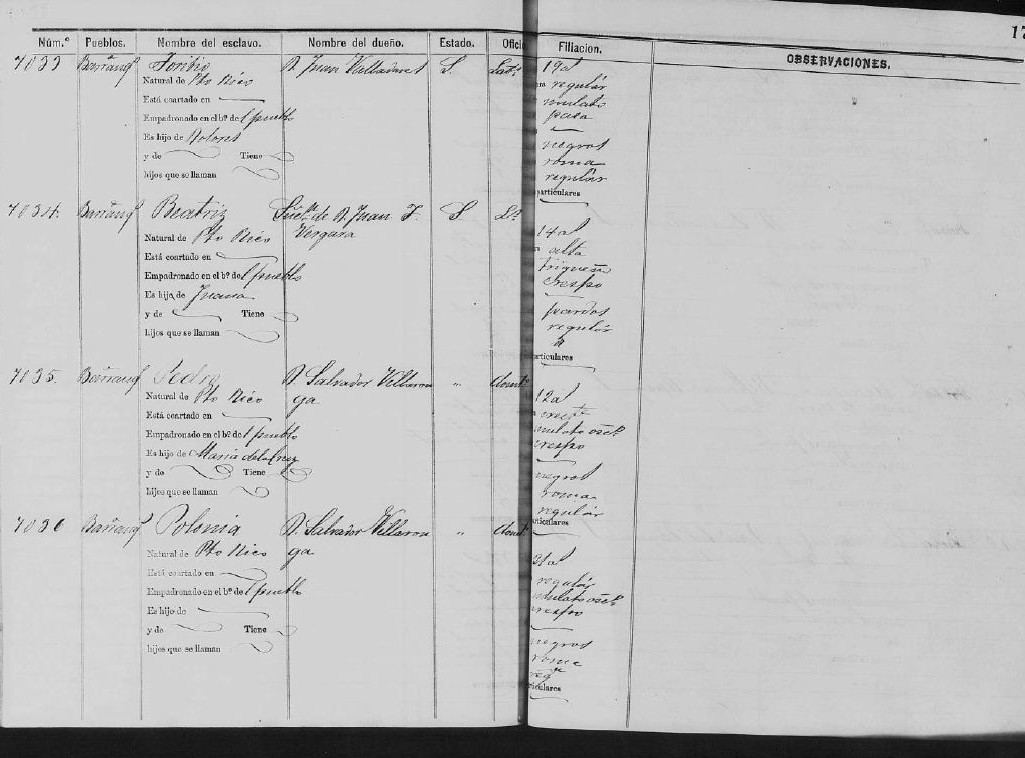 17
Núm.º Pueblos. Nombre del esclavo. Nombre del dueño. Estado. Ofici Filiacion. OBSERVACIONES.
7033 Barranq.s Toribio D. Juan Valladares S. Lab.r 19 a.s
Natural de Pto Rico regular
Está coartado en mulato
Empadronado en el bº de l pueblo pasa
Es hijo de Dolores negros
y de Tiene roma
hijos que se llaman regular
particulares
7034. Barranq.s Beatriz Suc.n de D. Juan F. S L.ª 14 a.s
Natural de Pto Rico Vergara alta
Está coartado en trigueña
Empadronado en el bº de l pueblo crespo
Es hija de Juana pardos
y de Tiene regular
hijos que se llaman
articulares
7035. Barranq.s Pedro D. Salvador Villaron " domt.º 12 a.s
Natural de Pto Rico ga
Está coartado en mulato
Empadronado en el bº de l pueblo crespo
Es hijo de Maria de la Cruz
y de Tiene negros
hijos que se llaman roma
regular
articulares
7036 Barranq.s Polonia D. Salvador Villaron " domt.
Natural de Pto Rico ga regular
Está coartado en mulato
Empadronado en el bº de l pueblo crespo
Es hijo de
y de Tiene negros
hijos que se llaman roma
reg.r
ticulares